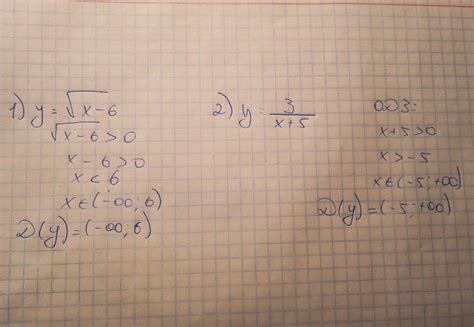 1) y = √x-6
√x-6 > 0
x - 6 > 0
x < 6
x ∈ (-∞; 6)
D(y) = (-∞; 6)
2) y = 3/(x+5)
ОДЗ:
x+5>0
x > -5
x ∈ (-5; +∞)
D(y) = (-5; +∞)